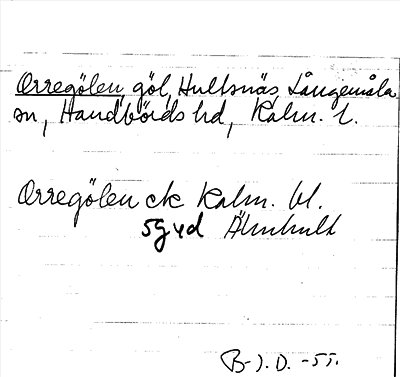 Orregölen, göl, Hultsnäs, Långemåla
sn, Handbörds hd, Kalm. l.
Orregölen ek Kalm. bl.
5g4d Älmhult
B-J.D. -55.